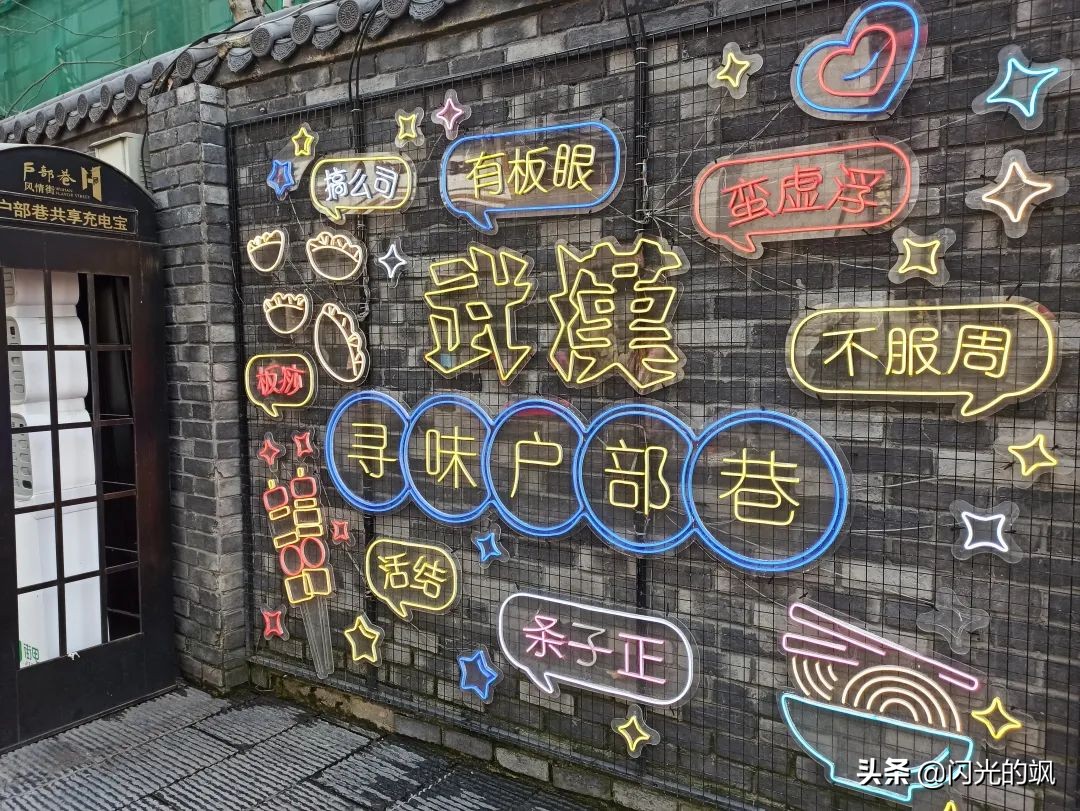 户部巷
风情街
户部巷共享充电宝
搞公司
有板眼
蛮虚浮
武漢
不服周
寻味户部巷
活结
条子正
头条 @闪光的飒